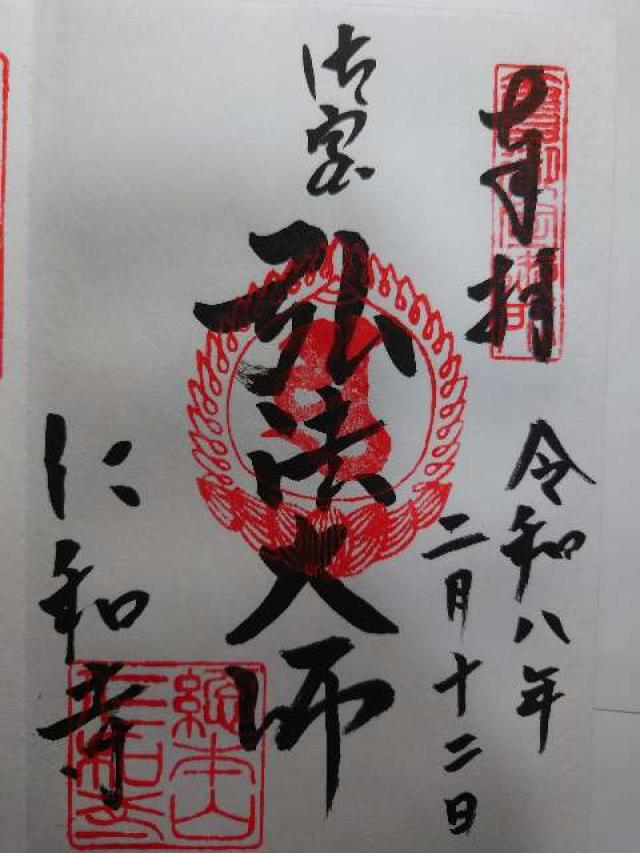 奉拝
令和八年
二月十二日
御室
弘法大師
仁和寺
総本山
仁和寺